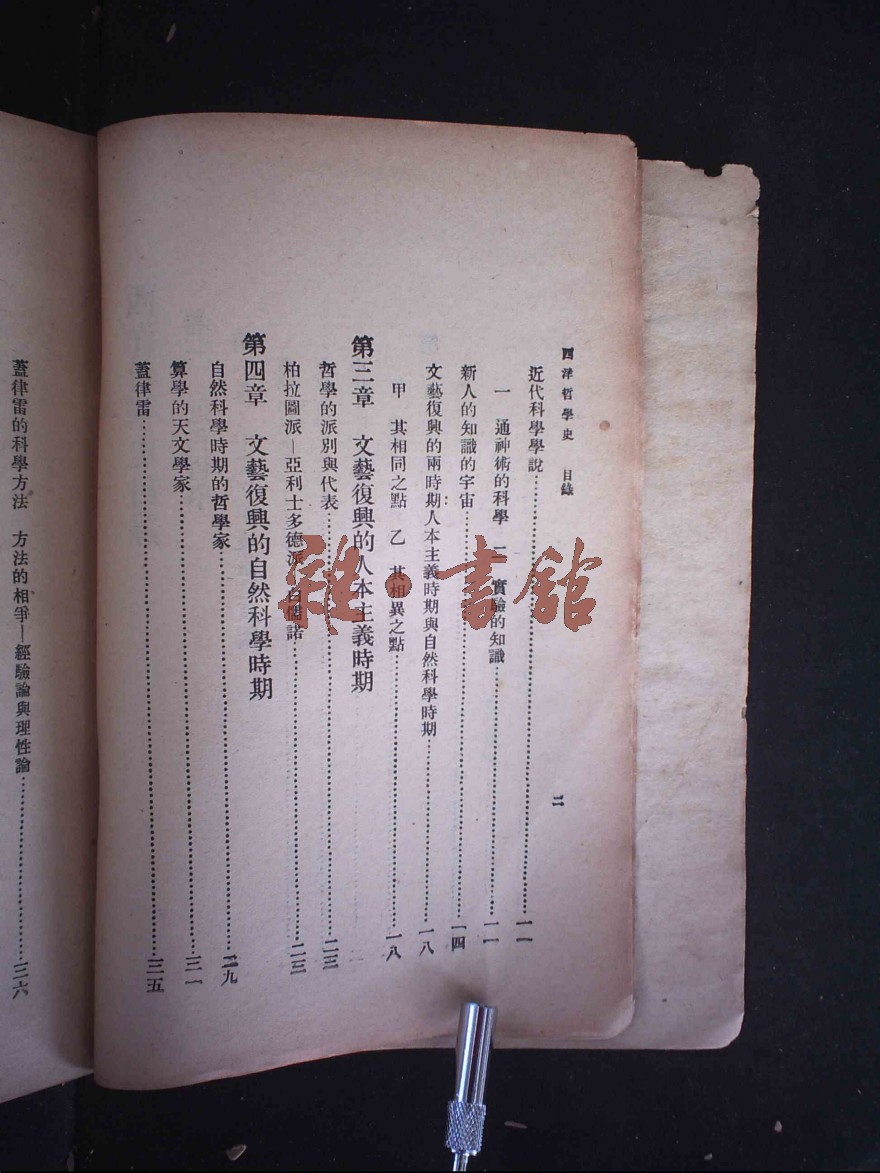 西洋哲學史　目錄
二
近代科學學說……一一
一　通神術的科學　二　實驗的知識……一一
新人的知識的宇宙……一四
文藝復興的兩時期人本主義時期與自然科學時期……一八
甲　其相同之點　乙　其相異之點……一八
第三章　文藝復興的人本主義時期
哲學的派別與代表……二三
柏拉圖派—亞利士多德派　白儒諾……二三
第四章　文藝復興的自然科學時期
自然科學時期的哲學家……二九
算學的天文學家……三一
蓋律雷……三五
蓋律雷的科學方法　方法的相爭—經驗論與理性論……三六
雜·書館